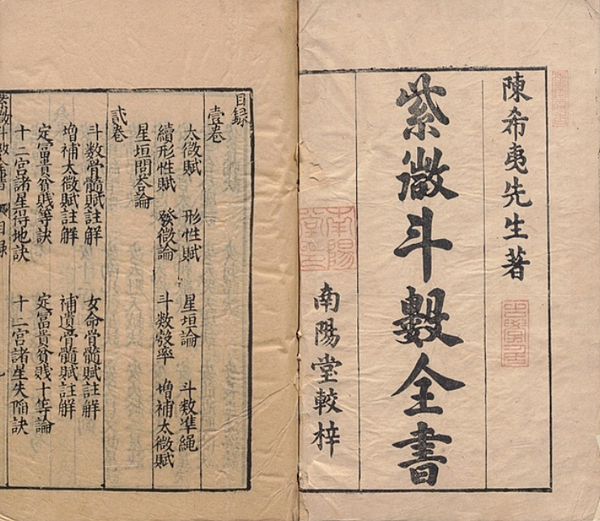 陳希夷先生著
紫微斗數全書
南陽堂較梓
南陽堂
目録
壹卷
太微賦　形性賦　星垣論　斗数準繩
續形性賦　發微論　斗数發率　增補太微賦
星垣問答論
貳卷
斗数骨髓賦註解　女命骨髓賦註解
增補太微賦註解　補遺骨髓賦註解
定富貴貧賤等訣　定富貴貧賤十等論
十二宮諸星得地訣　十二宮諸星失陷訣
紫微斗數全書　目录　一